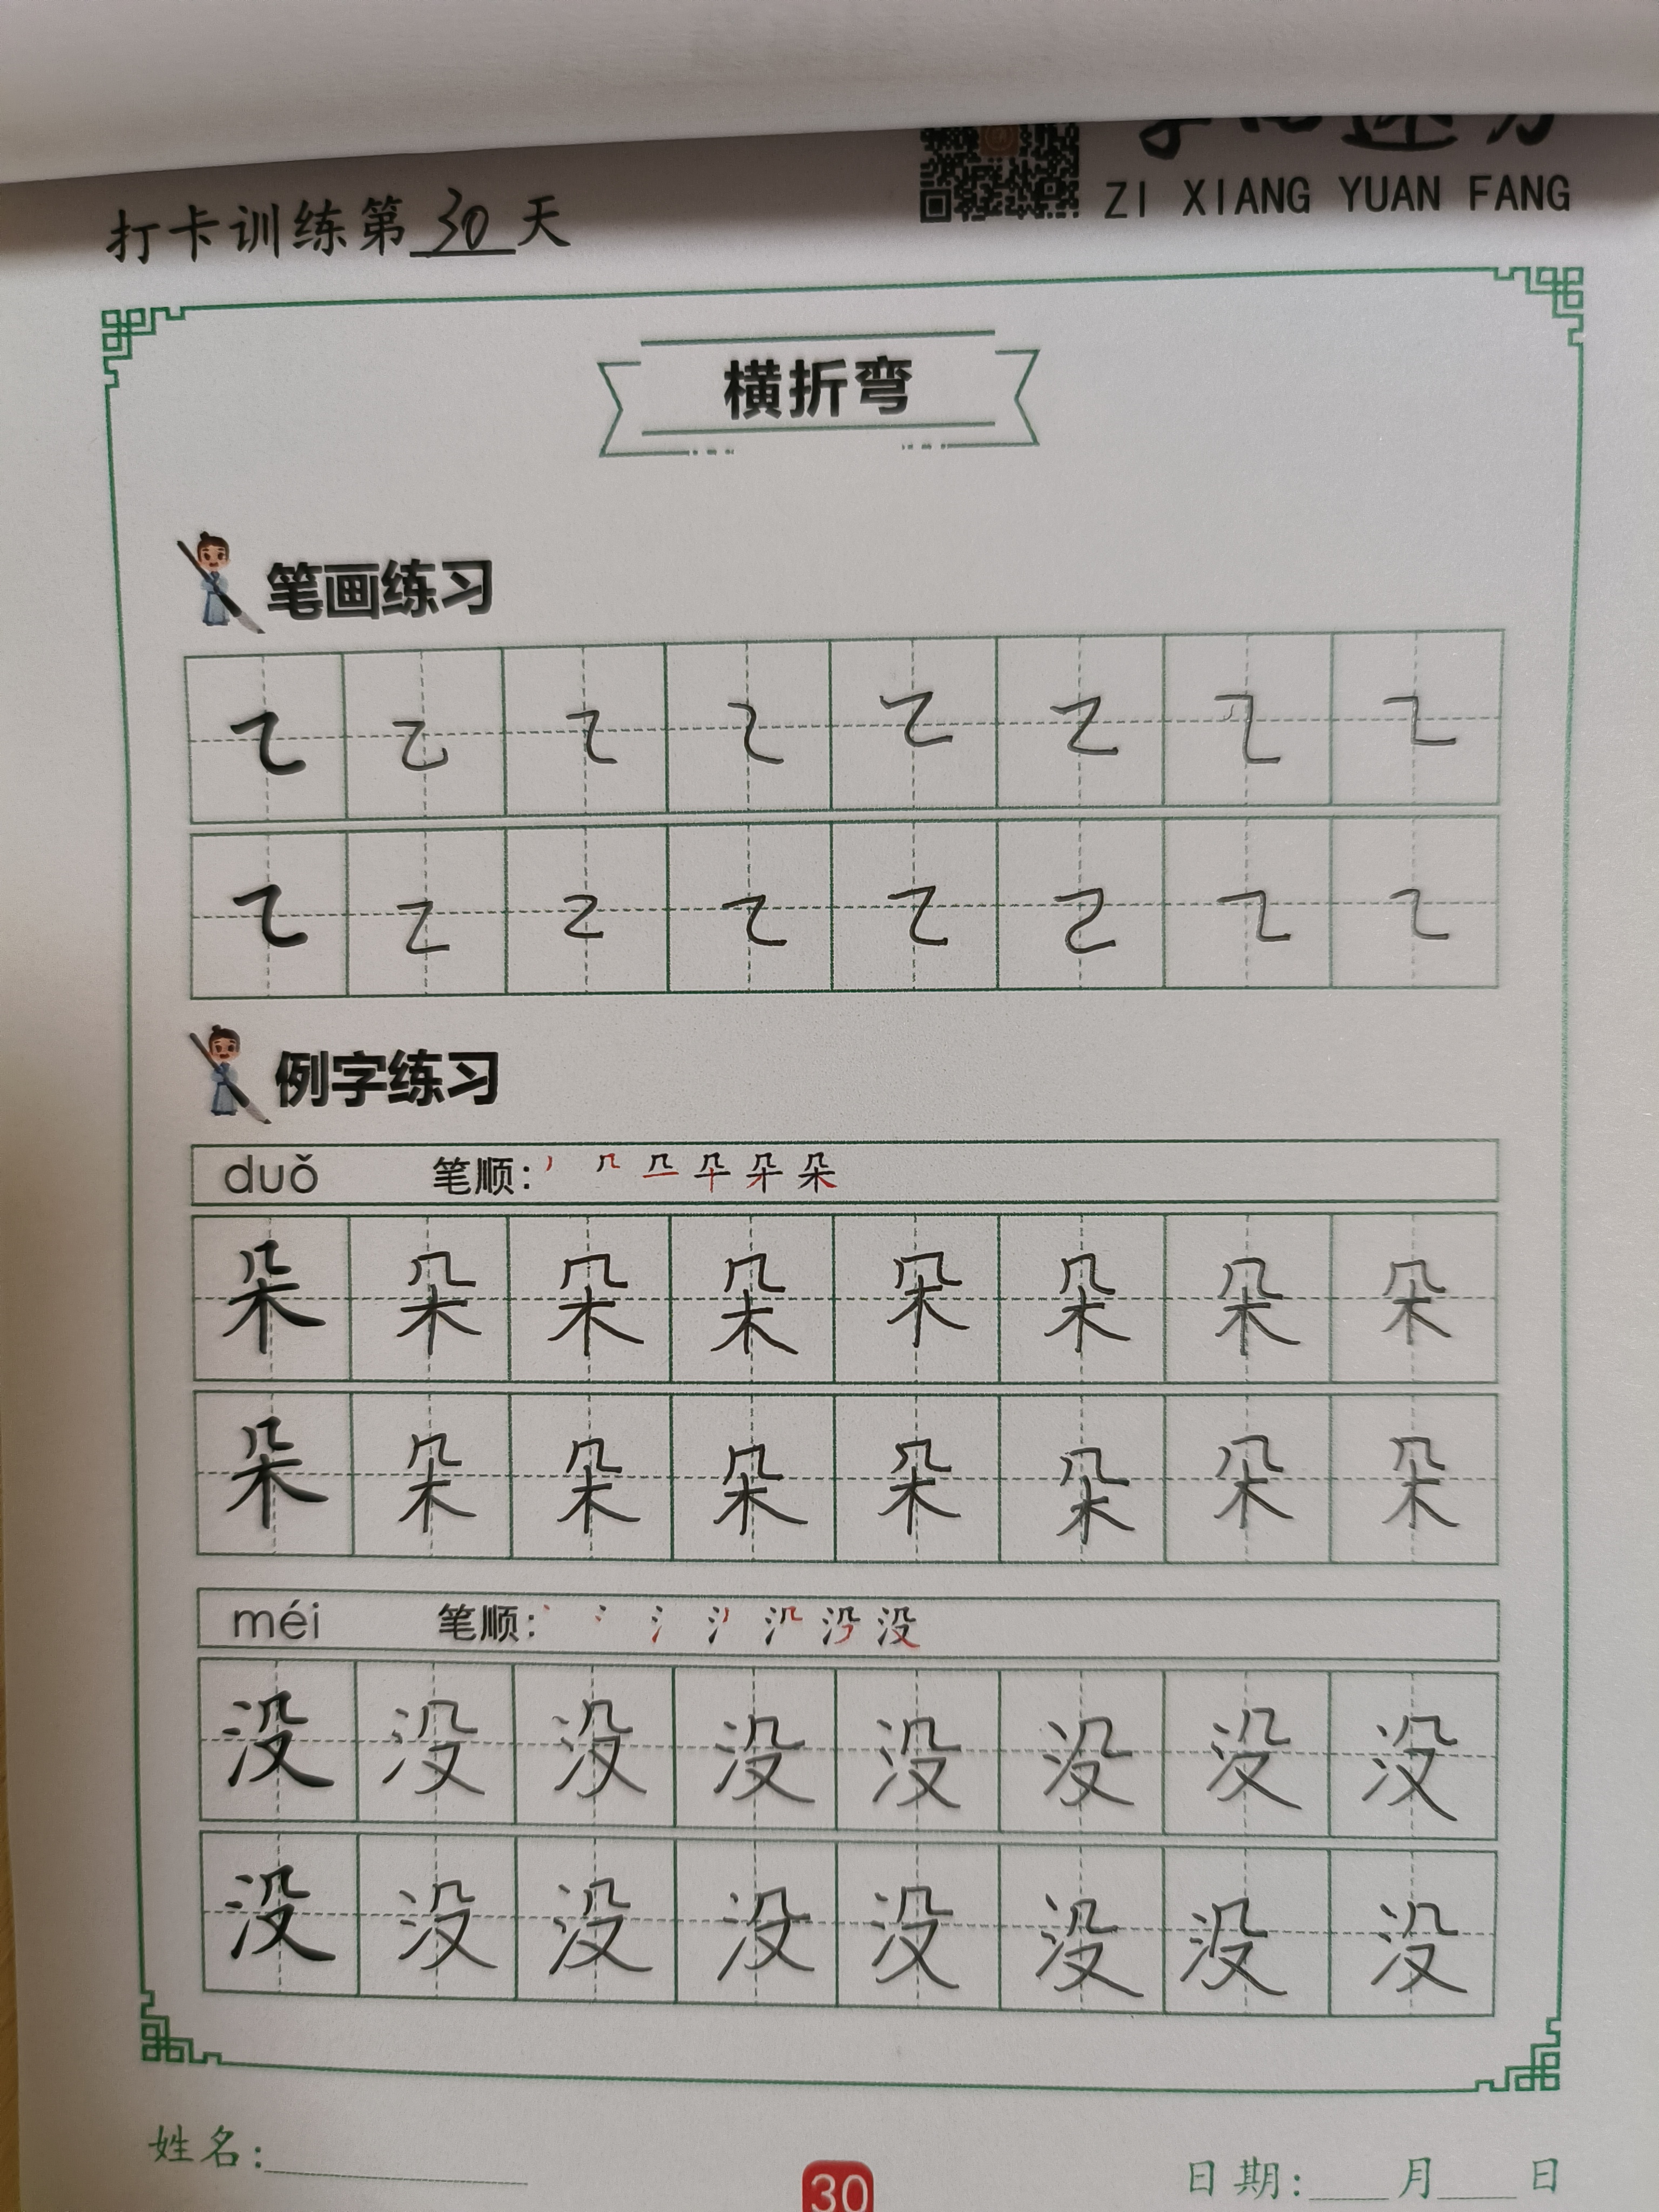 ZI XIANG YUAN FANG
打卡训练第30天
横折弯
笔画练习
例字练习
duǒ 笔顺:
朵 朵 朵 朵 朵 朵 朵 朵
朵 朵 朵 朵 朵 朵 朵 朵
méi 笔顺: 没
没 没 没 没 没 没 没 没
没 没 没 没 没 没 没 没
姓名:
30
日期: 月 日